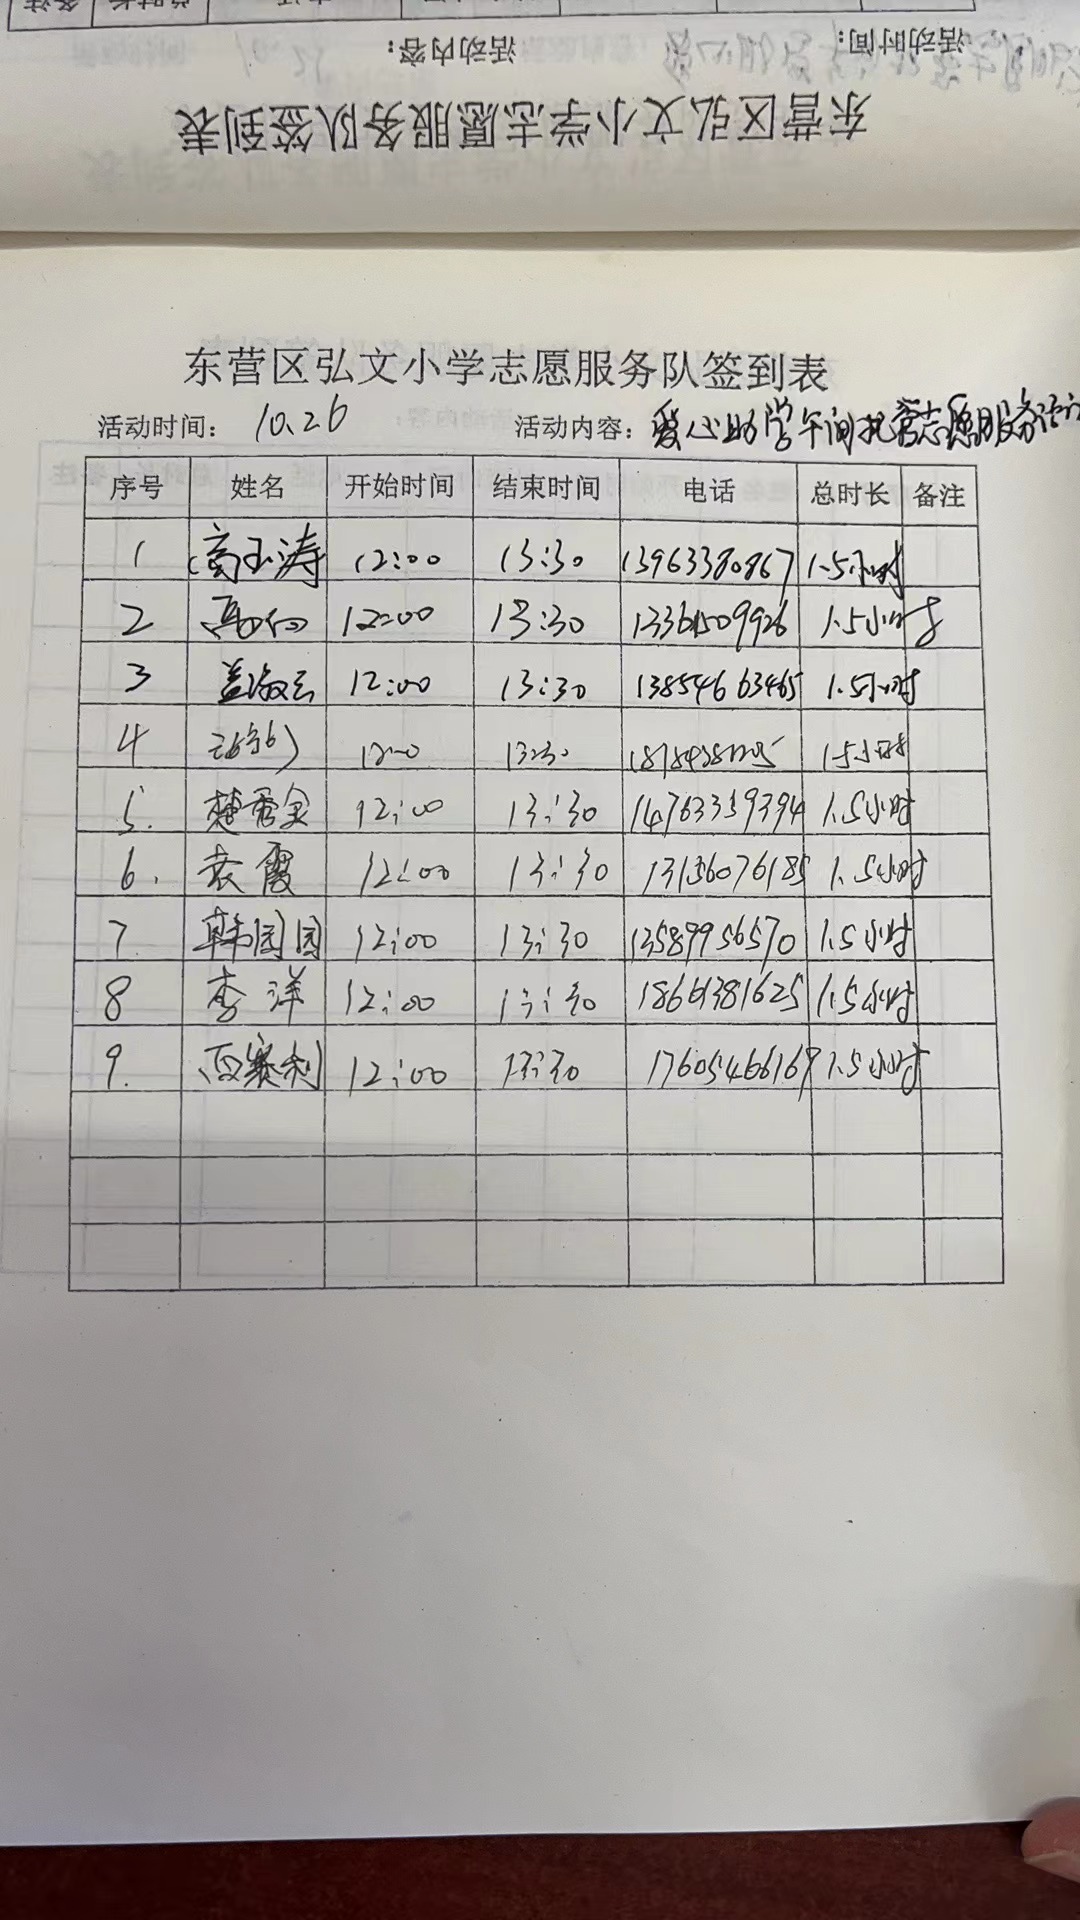 活动时间： 活动内容：
东营区弘文小学志愿服务队签到表
东营区弘文小学志愿服务队签到表
活动时间： 10.26 活动内容： 爱心助学午间托管志愿服务活动
序号 姓名 开始时间 结束时间 电话 总时长 备注
1 高玉涛 12:00 13:30 13963380867 1.5小时
2 12:00 13:30 13361509926 1.5小时
3 盖淑云 12:00 13:30 13854663465 1.5小时
4 12:00 13:30 1.5小时
5. 楚秀全 12:00 13:30 14763359394 1.5小时
6. 袁霞 12:00 13:30 13156076185 1.5小时
7 韩园园 12:00 13:30 13589956570 1.5小时
8 李洋 12:00 13:30 18661381625 1.5小时
9. 12:00 13:30 17605466167 1.5小时